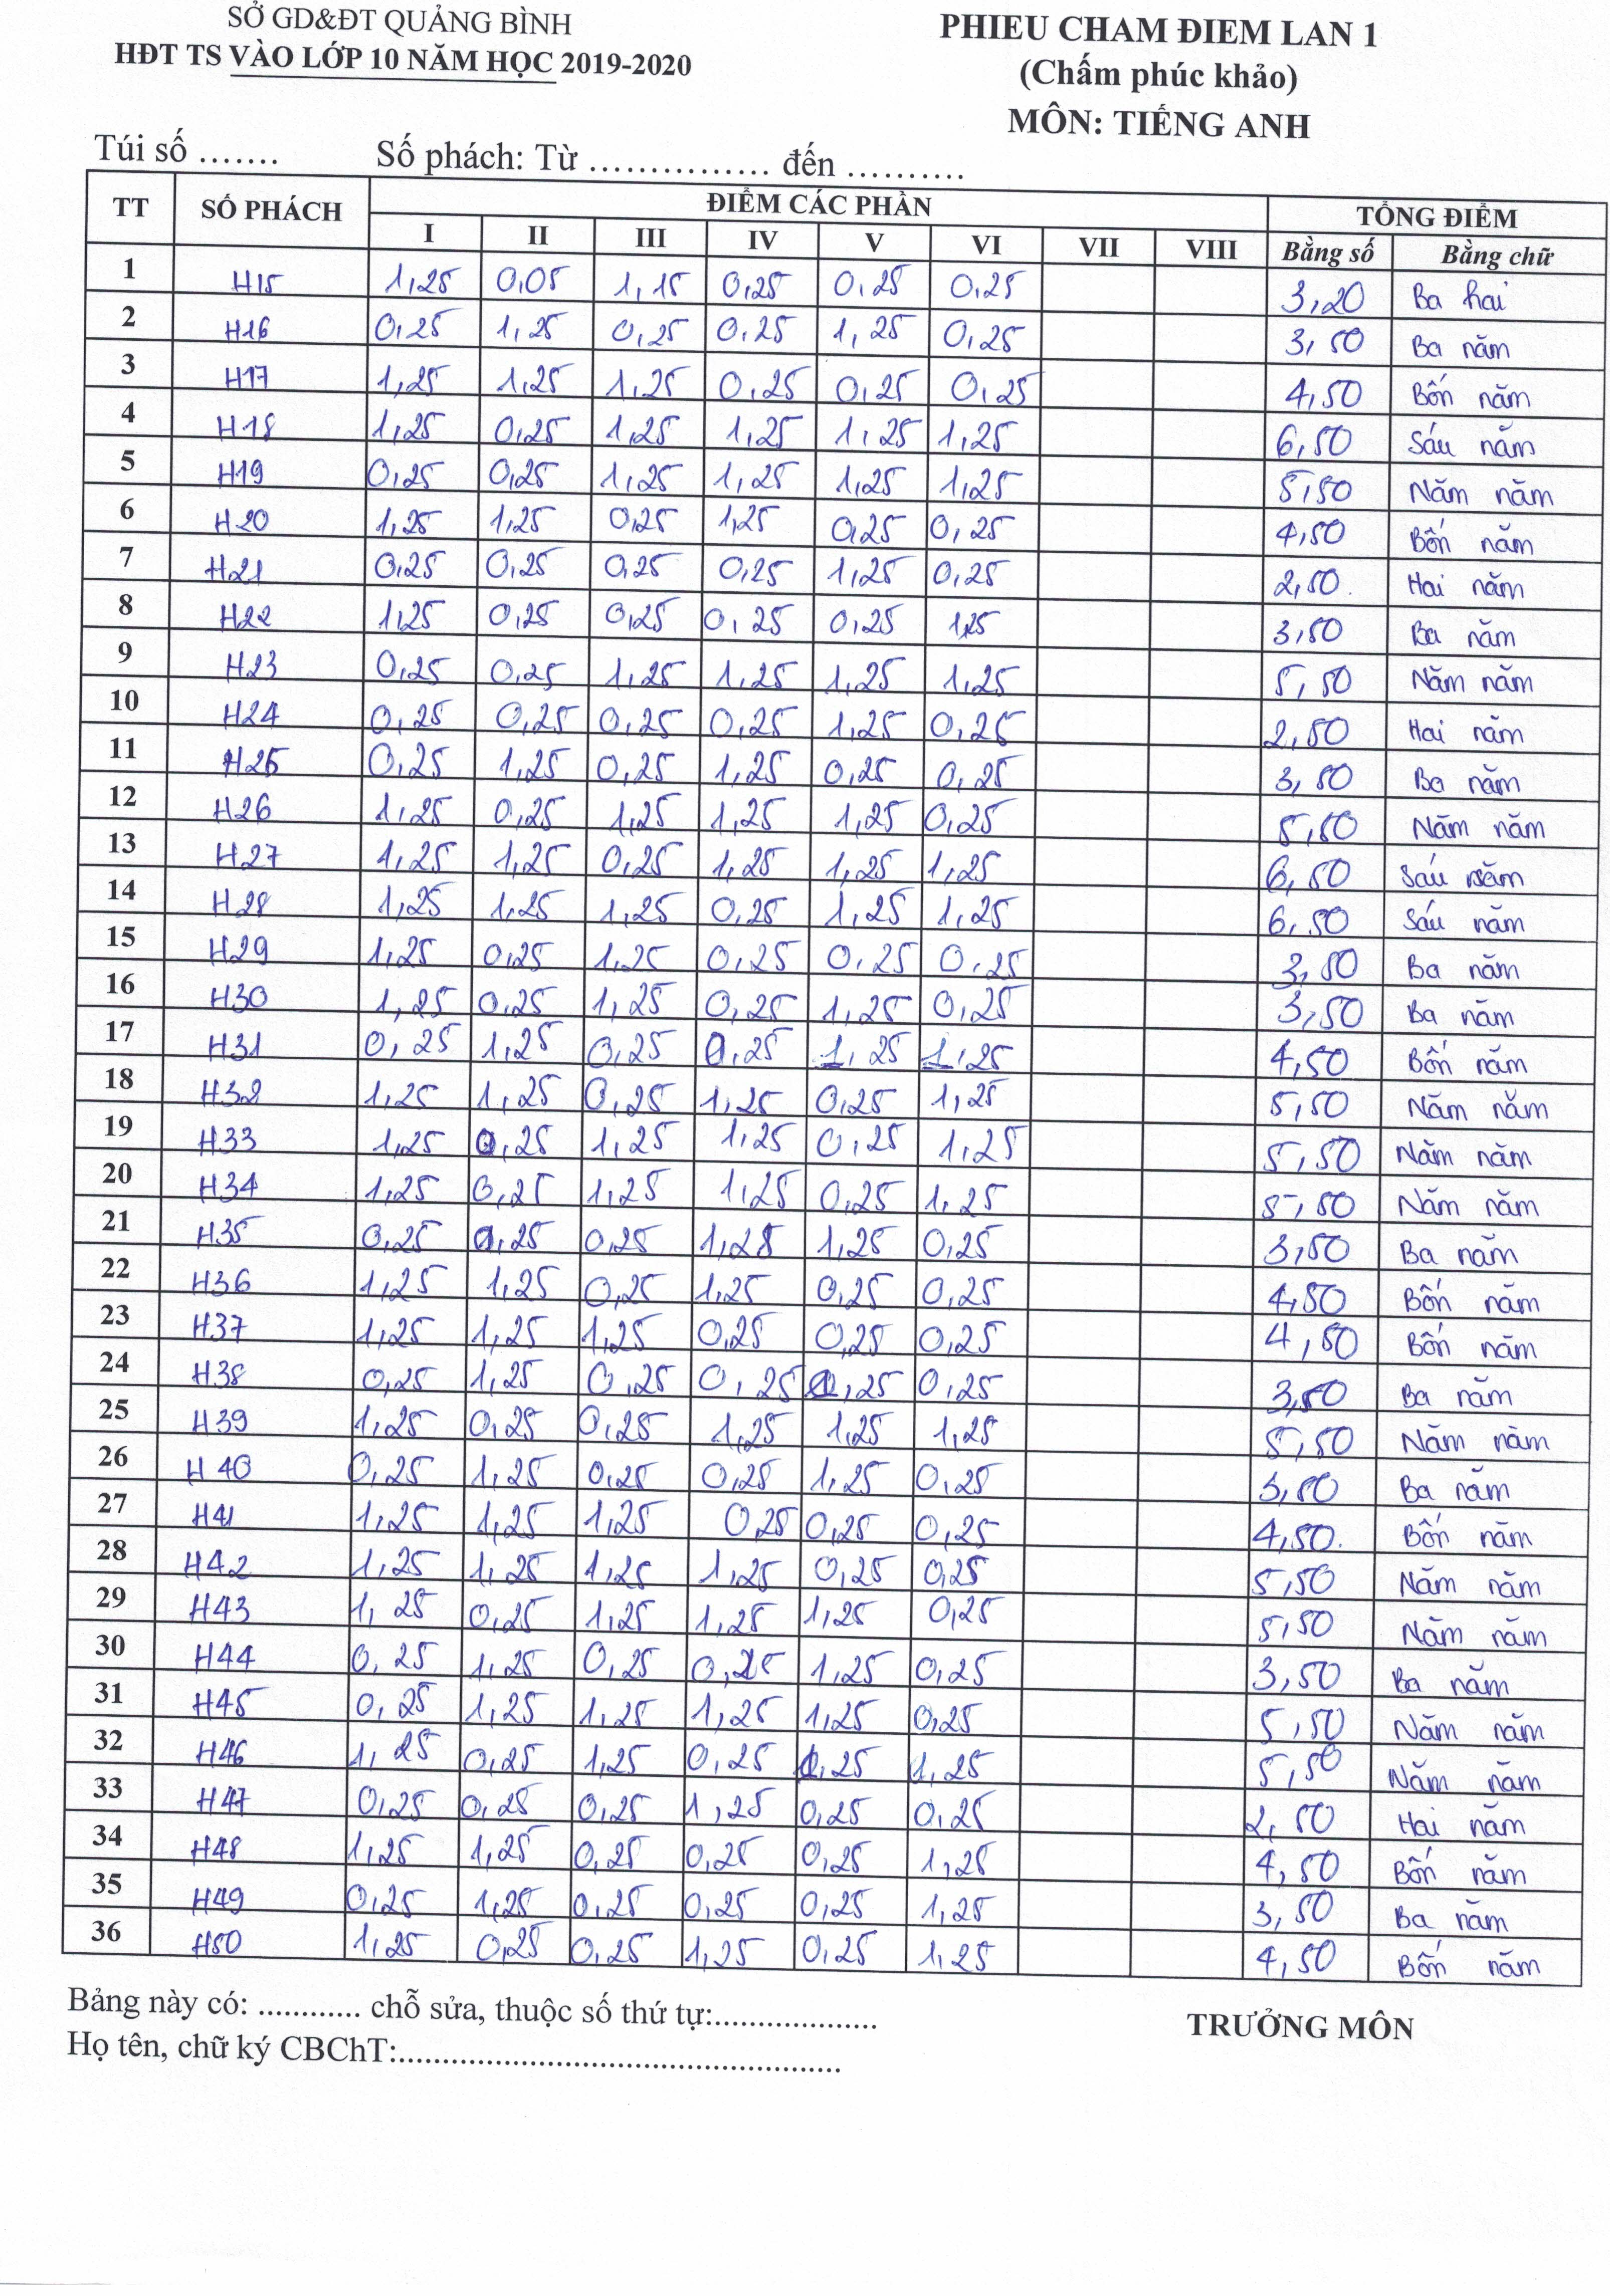 SỞ GD&ĐT QUẢNG BÌNH
HĐT TS VÀO LỚP 10 NĂM HỌC 2019-2020
PHIEU CHAM ĐIEM LAN 1
(Chấm phúc khảo)
MÔN: TIẾNG ANH
Túi số ....... Số phách: Từ ................ đến ..........
TT SỐ PHÁCH ĐIỂM CÁC PHẦN TỔNG ĐIỂM
I II III IV V VI VII VIII Bằng số Bằng chữ
1 H15 1,25 0,05 1,15 0,25 0,25 0,25 3,20 Ba hai
2 H16 0,25 1,25 0,25 0,25 1,25 0,25 3,50 Ba năm
3 H17 1,25 1,25 1,25 0,25 0,25 0,25 4,50 Bốn năm
4 H18 1,25 0,25 1,25 1,25 1,25 1,25 6,50 Sáu năm
5 H19 0,25 0,25 1,25 1,25 1,25 1,25 5,50 Năm năm
6 H20 1,25 1,25 0,25 1,25 0,25 0,25 4,50 Bốn năm
7 H21 0,25 0,25 0,25 0,25 1,25 0,25 2,50. Hai năm
8 H22 1,25 0,25 0,25 0,25 0,25 1,25 3,50 Ba năm
9 H23 0,25 0,25 1,25 1,25 1,25 1,25 5,50 Năm năm
10 H24 0,25 0,25 0,25 0,25 1,25 0,25 2,50 Hai năm
11 H25 0,25 1,25 0,25 1,25 0,25 0,25 3,50 Ba năm
12 H26 1,25 0,25 1,25 1,25 1,25 0,25 5,50 Năm năm
13 H27 1,25 1,25 0,25 1,25 1,25 1,25 6,50 Sáu năm
14 H28 1,25 1,25 1,25 0,25 1,25 1,25 6,50 Sáu năm
15 H29 1,25 0,25 1,25 0,25 0,25 0,25 3,50 Ba năm
16 H30 1,25 0,25 1,25 0,25 1,25 0,25 3,50 Ba năm
17 H31 0,25 1,25 0,25 0,25 1,25 1,25 4,50 Bốn năm
18 H32 1,25 1,25 0,25 1,25 0,25 1,25 5,50 Năm năm
19 H33 1,25 0,25 1,25 1,25 0,25 1,25 5,50 Năm năm
20 H34 1,25 0,25 1,25 1,25 0,25 1,25 5,50 Năm năm
21 H35 0,25 0,25 0,25 1,25 1,25 0,25 3,50 Ba năm
22 H36 1,25 1,25 0,25 1,25 0,25 0,25 4,50 Bốn năm
23 H37 1,25 1,25 1,25 0,25 0,25 0,25 4,50 Bốn năm
24 H38 0,25 1,25 0,25 0,25 0,25 0,25 3,50 Ba năm
25 H39 1,25 0,25 0,25 1,25 1,25 1,25 5,50 Năm năm
26 H40 0,25 1,25 0,25 0,25 1,25 0,25 3,50 Ba năm
27 H41 1,25 1,25 1,25 0,25 0,25 0,25 4,50. Bốn năm
28 H42 1,25 1,25 1,25 1,25 0,25 0,25 5,50 Năm năm
29 H43 1,25 0,25 1,25 1,25 1,25 0,25 5,50 Năm năm
30 H44 0,25 1,25 0,25 0,25 1,25 0,25 3,50 Ba năm
31 H45 0,25 1,25 1,25 1,25 1,25 0,25 5,50 Năm năm
32 H46 1,25 0,25 1,25 0,25 1,25 5,50 Năm năm
33 H47 0,25 0,25 0,25 1,25 0,25 0,25 2,50 Hai năm
34 H48 1,25 1,25 0,25 0,25 0,25 1,25 4,50 Bốn năm
35 H49 0,25 1,25 0,25 0,25 0,25 1,25 3,50 Ba năm
36 H50 1,25 0,25 0,25 1,25 0,25 1,25 4,50 Bốn năm
Bảng này có: ............ chỗ sửa, thuộc số thứ tự:...................
TRƯỞNG MÔN
Họ tên, chữ ký CBChT:....................................................